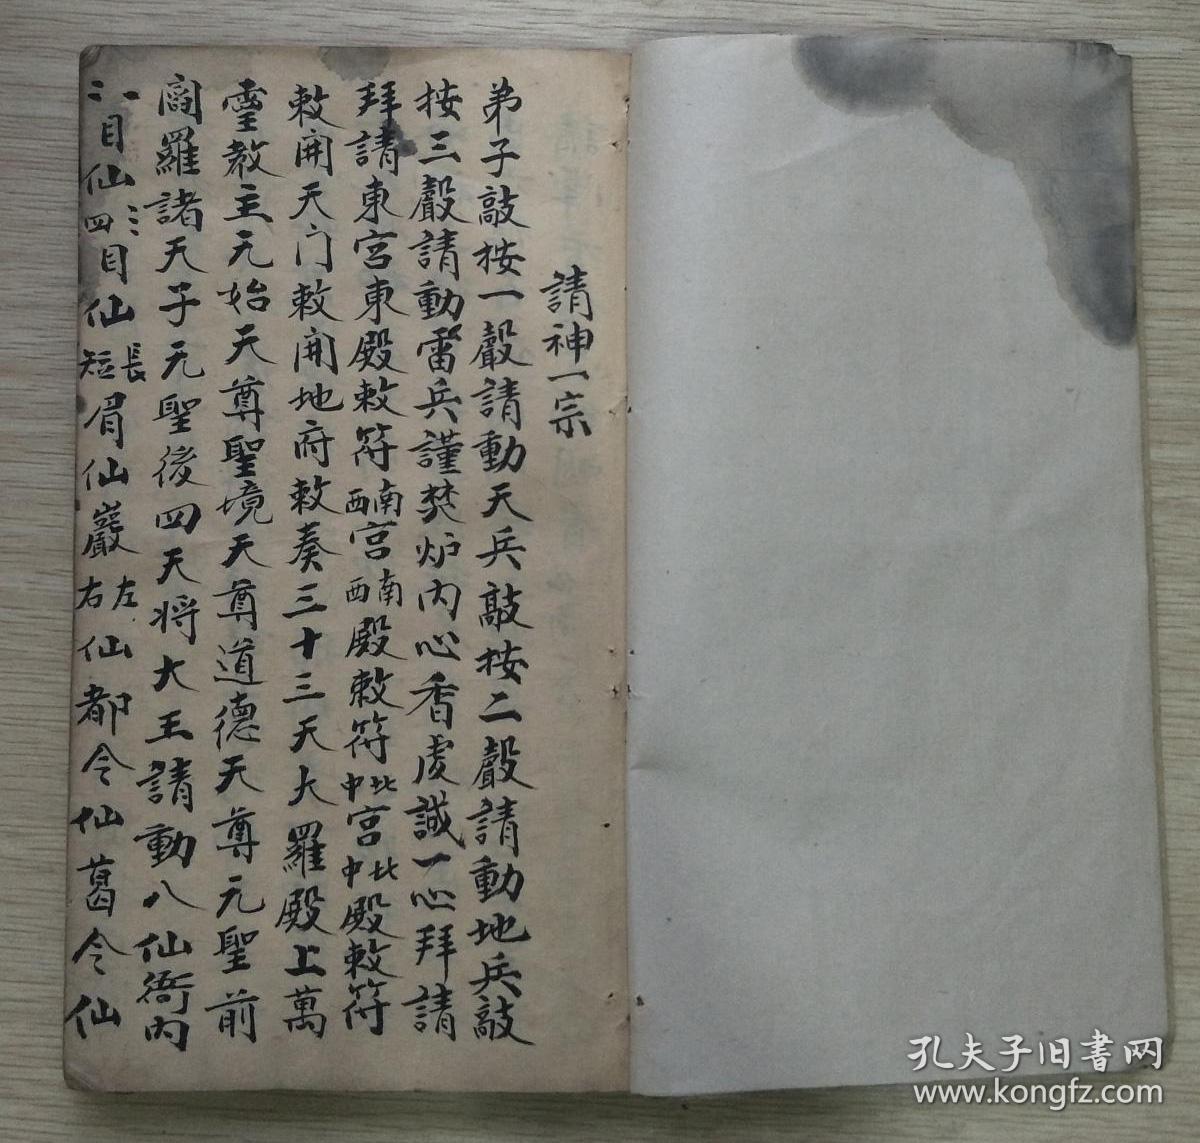 請神一宗
弟子敲按一聲請動天兵敲按二聲請動地兵敲
按三聲請動雷兵謹焚炉内心香虔誠一心拜請
拜請東宮東殿敕符南西宮南西殿敕符北中宮北中殿敕符
敕開天门敕開地府敕奏三十三天大羅殿上萬
靈教主元始天尊聖境天尊道德天尊元聖前
閻羅諸天子元聖後四天将大王請動八仙衙内
一二目仙三四目仙長短眉仙巖左右仙都令仙葛令仙
孔夫子旧書网
www.kongfz.com